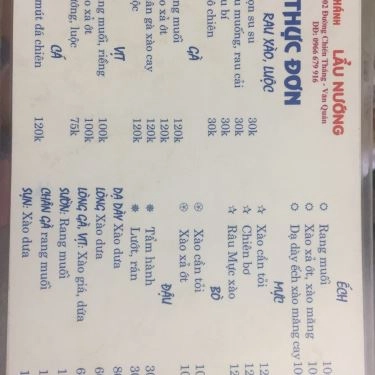 HÁNH
LẨU NƯỚNG
02 Đường Chiến Thắng - Văn Quán
DĐ: 0966 679 916
THỰC ĐƠN
RAU XÀO, LUỘC
ọn su su 30k
u muống, rau cải 30k
u bí 30k
ô chiên 30k
GÀ
ng muối 120k
o xả ớt 120k
ân gà xào cay 120k
ộc 120k
VỊT
ng muối, riềng 100k
o xả ớt 100k
ớng, luộc 75k
CÁ
mót đá chiên 120k
ẾCH
Rang muối 10
Xào xả ớt, xào măng 10
Dạ dày ếch xào măng cay 10
MỰC
Xào cần tỏi 12
Chiên bơ 12
Râu Mực xào 12
BÒ
Xào cần tỏi 10
Xào xả ớt 10
ĐẬU
Tẩm hành 30
Lướt, rán 30
DẠ DÀY Xào dưa 80
LÒNG Xào dưa 60
LÒNG GÀ, VỊT: Xào giá, dứa 6
SƯỜN: Rang muối 1
CHÂN GÀ rang muối 1
SỤN: Xào dưa 1